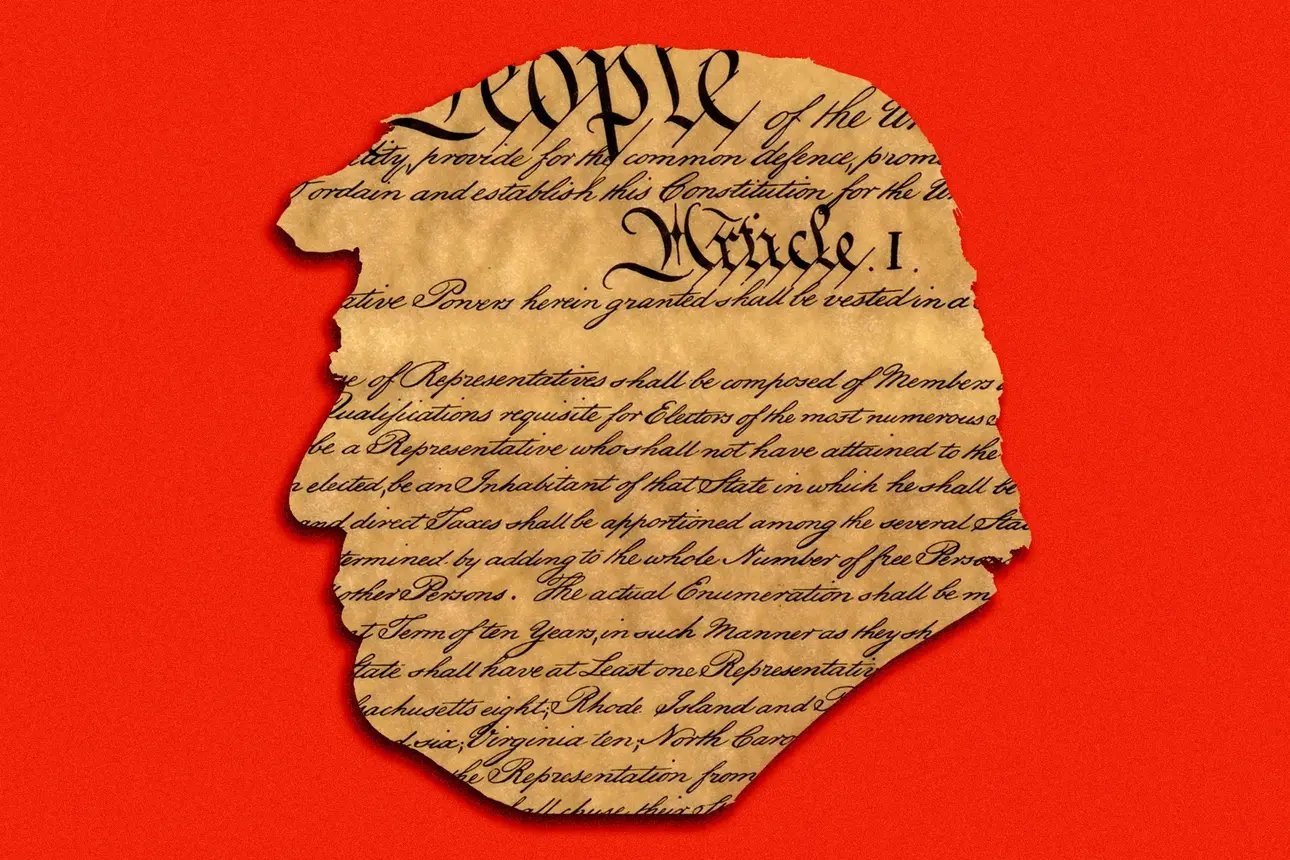 People of the
provide for the common defence, prom
ordain and establish this Constitution for the
Article. I.
ative Powers herein granted shall be vested in a
of Representatives shall be composed of Members
Qualifications requisite for Electors of the most numerous
be a Representative who shall not have attained to the
elected, be an Inhabitant of that State in which he shall be
and direct Taxes shall be apportioned among the several Sta
termined by adding to the whole Number of free Person
other Persons. The actual Enumeration shall be m
Term of ten Years, in such Manner as they sh
State shall have at Least one Representativ
sachusetts eight; Rhode Island and P
six; Virginia ten; North Caro
the Representation from
chuse their